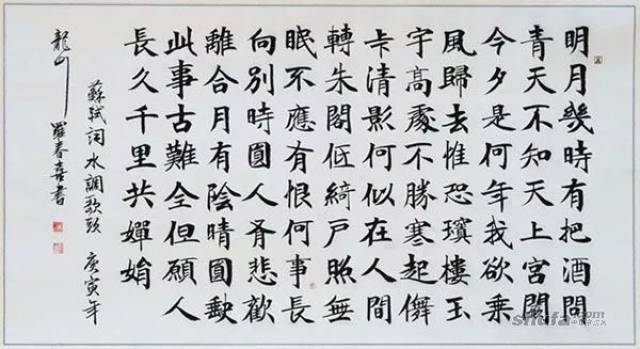 明月幾時有把酒問
青天不知天上宮闕
今夕是何年我欲乘
風歸去惟恐瓊樓玉
宇高處不勝寒起儛
卡清影何似在人間
轉朱閣低綺戶照無
眠不應有恨何事長
向別時圓人有悲歡
離合月有陰晴圓缺
此事古難全但願人
長久千里共嬋娟
蘇軾詞水調歌頭 庚寅年
龍山 羅春喜書
shufa.com